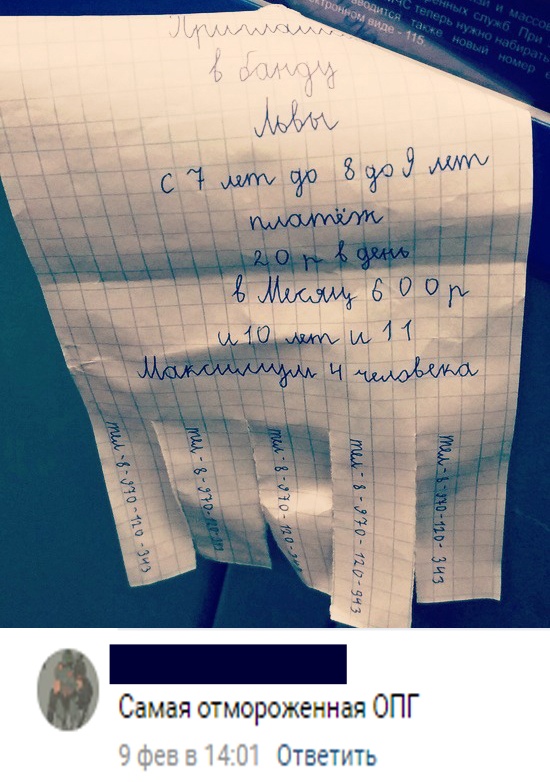 Приглаш
в банду
Львы
с 7 лет до 8 до 9 лет
платёж
20 р в день
в Месяц 600р
и 10 лет и 11
Максимум 4 человека
тел-8-970-120-343
тел-8-970-120-
тел-8-970-120-343
тел-8-970-120-943
тел-8-970-120-343
и массов
енных служб. При
ЧС теперь нужно набирать
вводится также новый номер
ктронном виде - 115.
Самая отмороженная ОПГ
9 фев в 14:01 Ответить